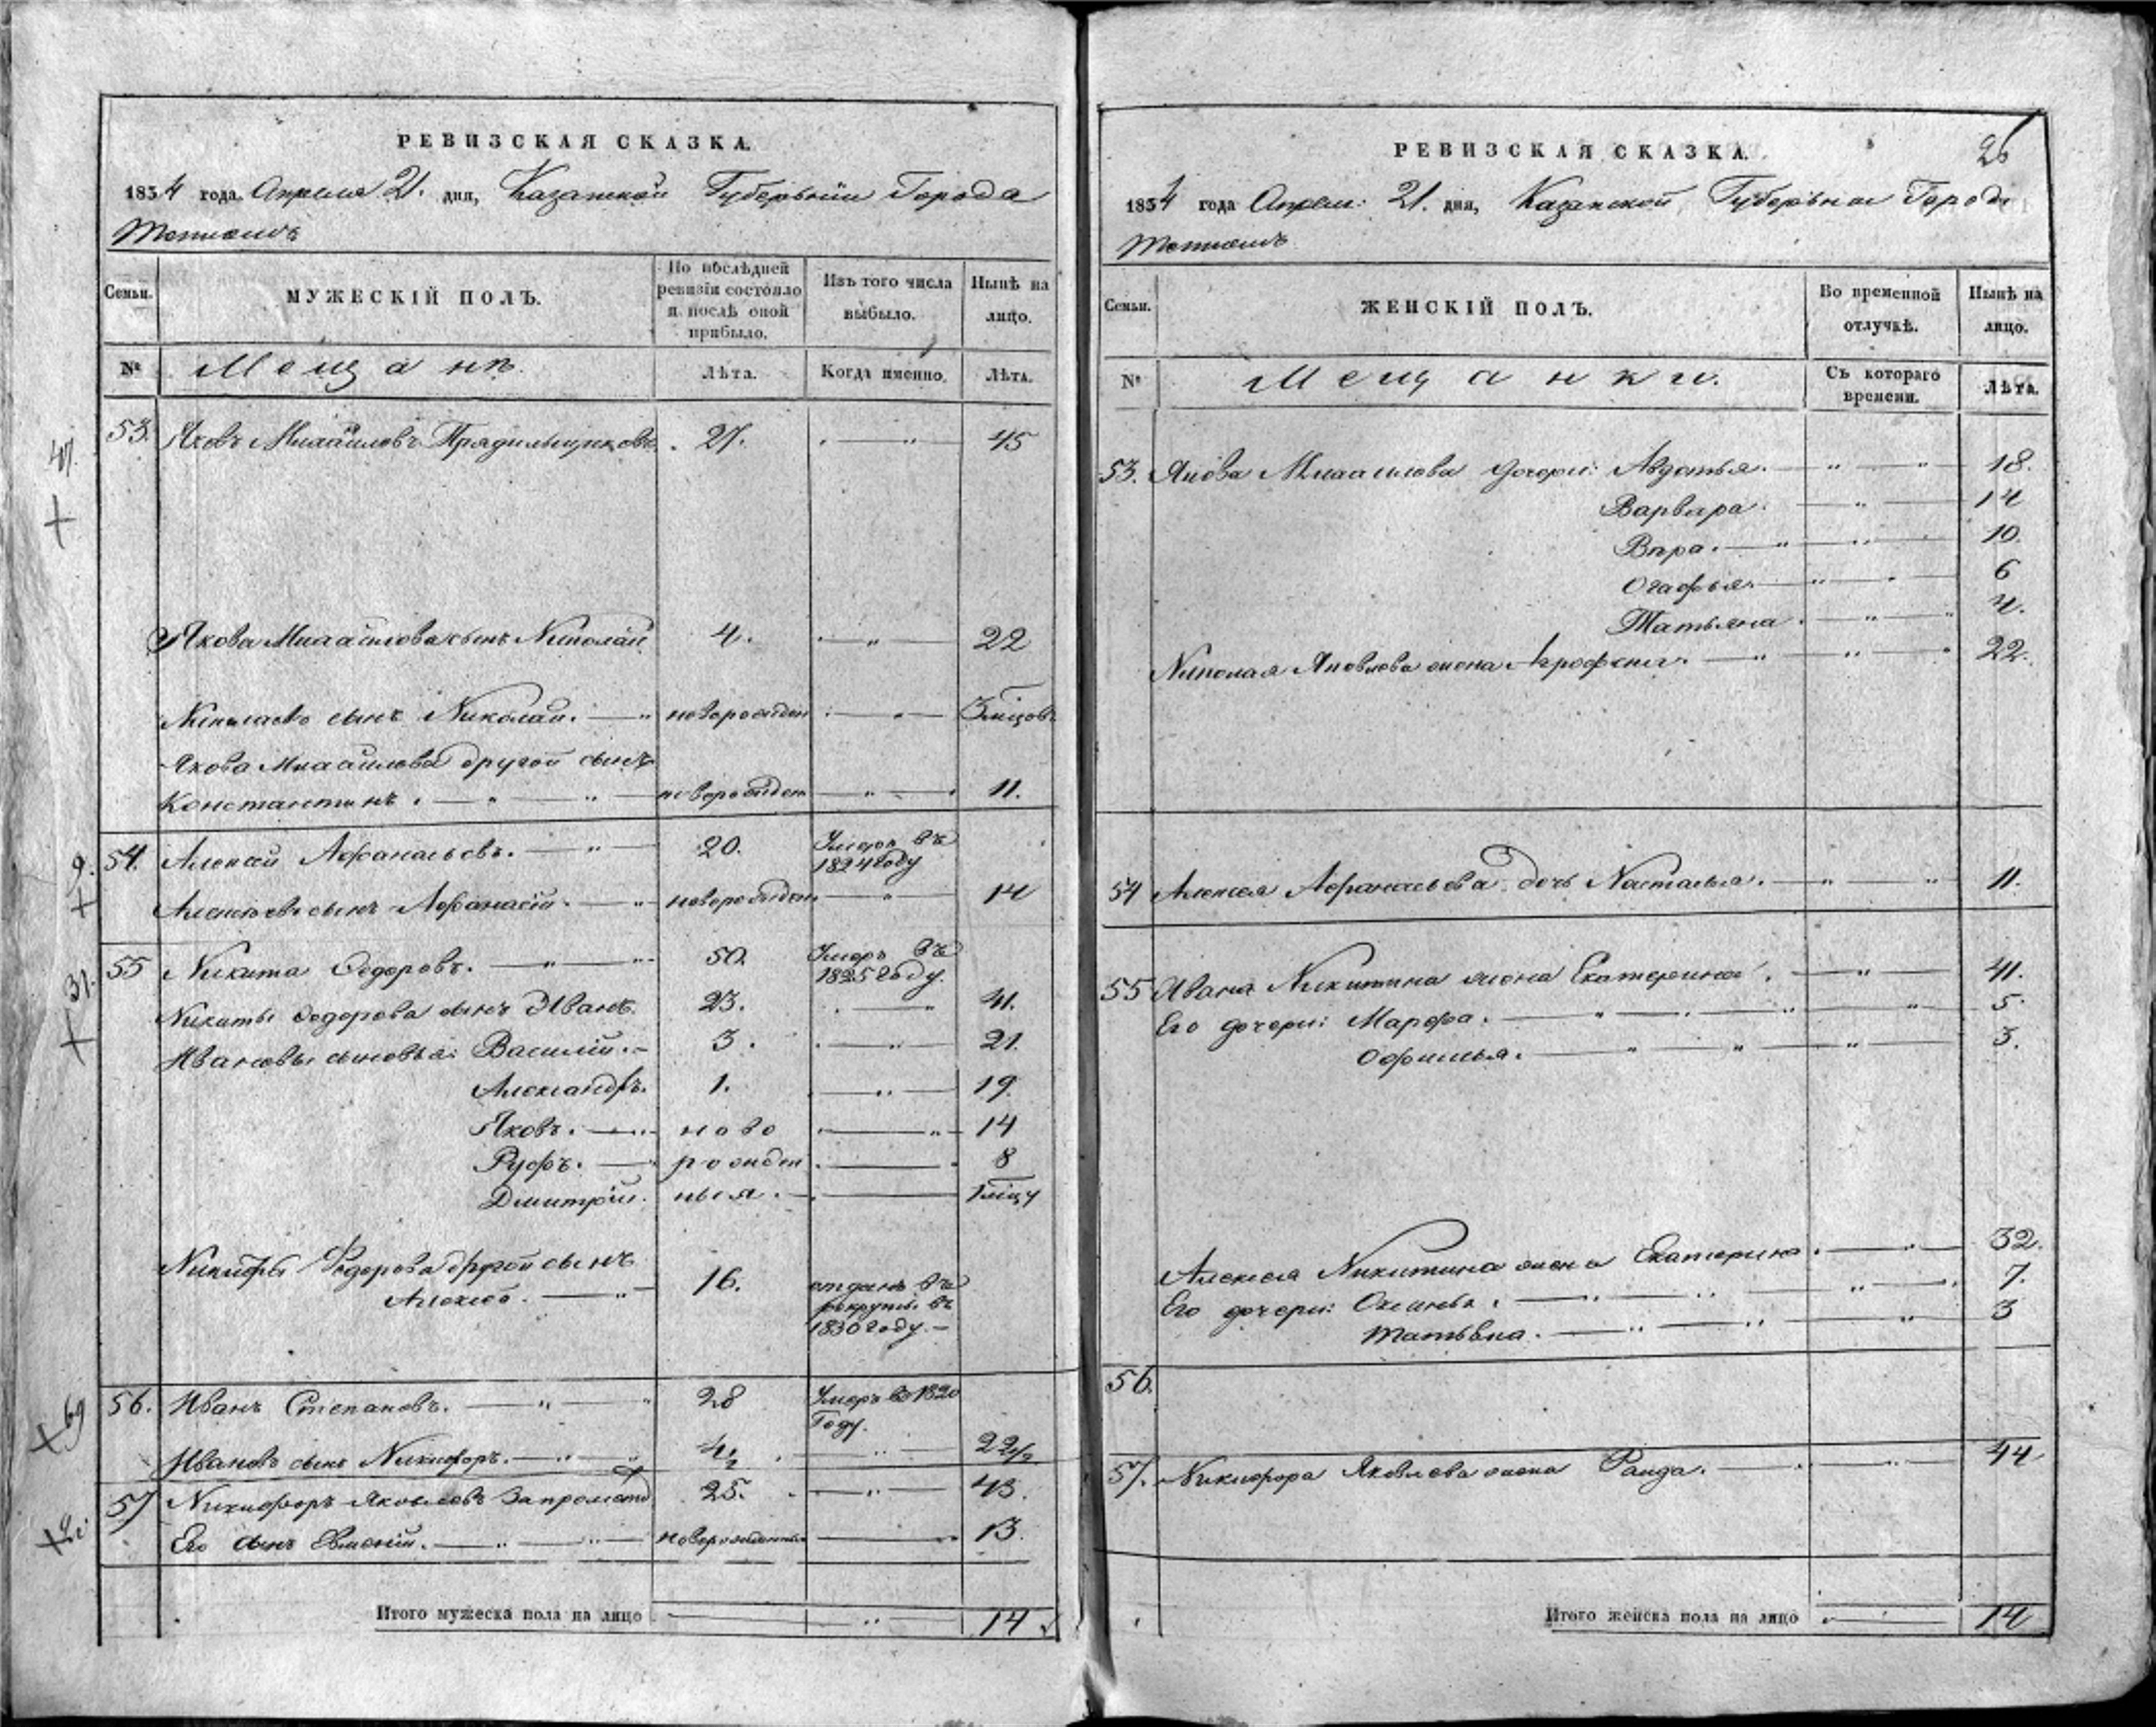 РЕВИЗСКАЯ СКАЗКА.
1834 года Апреля 21. дня, Казанской Губернии Города
Тетюшъ
Семьи.
МУЖЕСКІЙ ПОЛЪ.
По послѣдней ревизіи состояло и послѣ оной прибыло.
Изъ того числа выбыло.
Нынѣ на лицо.
№
Мещанъ.
Лѣта.
Когда именно.
Лѣта.
47.
53. Яковъ Михайловъ Прядильщиковъ. 27. 45
Якова Михайлова сынъ Николай 4. 22
Николаевъ сынъ Николай. новорожден 3 мѣцов
Якова Михайлова другой сынъ
Константинъ. новорожден 11.
9.
54. Алексей Афанасьевъ. 20. Умеръ въ 1824 году
Алексеевъ сынъ Афанасій. новорожден 14
31.
55 Никита Федоровъ. 50. Умеръ въ 1825 году.
Никиты Федорова сынъ Иванъ. 23. 41.
Ивановы сыновья: Василій. 3. 21.
Александръ. 1. 19.
Яковъ. ново 14
Руфъ. рожден 8
Дмитрій. ныя. 1 мѣцу
Никиты Федорова другой сынъ
Алексей. 16. отданъ въ рекруты въ 1830 году.
69
56. Иванъ Степановъ. 28 Умеръ въ 1820 Году.
Ивановъ сынъ Никифоръ. 4½ 22½
57 Никифоръ Яковлевъ 25. 43.
Его сынъ Евмений. новорожденны 13.
Итого мужеска пола на лицо 14
РЕВИЗСКАЯ СКАЗКА.
26
1834 года Апреля: 21. дня, Казанской Губернии Города
Тетюшъ
Семьи.
ЖЕНСКІЙ ПОЛЪ.
Во временной отлучкѣ.
Нынѣ на лицо.
№
Мещанки.
Съ котораго времени.
Лѣта.
53. Якова Михайлова дочери: Авдотья. 18.
Варвара. 14
Вѣра. 10.
Огафья. 6
Татьяна. 4.
Николая Яковлева жена Аграфена. 22.
54 Алексея Афанасьева дочь Наталья. 11.
55 Ивана Никитина жена Екатерина. 41.
Его дочери: Марфа. 5.
Офимья. 3.
Алексея Никитина жена Екатерина. 32.
Его дочери: Оксинья. 7.
Татьяна. 3
56.
57. Никифора Яковлева жена Раида. 44
Итого женска пола на лицо 14